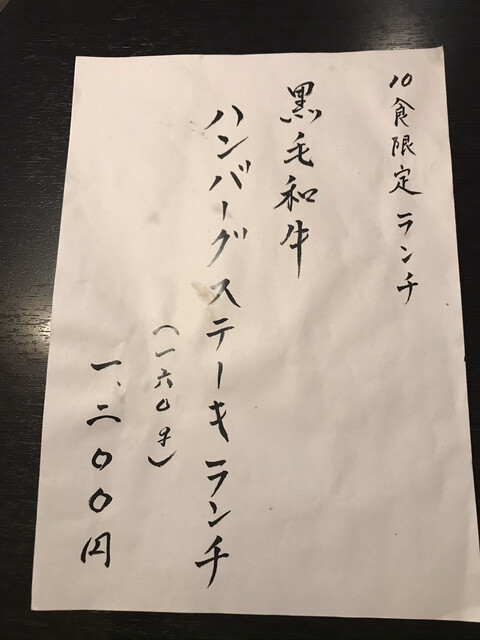 10食限定ランチ
黒毛和牛
ハンバーグステーキランチ
(一六〇g)
一、二〇〇円